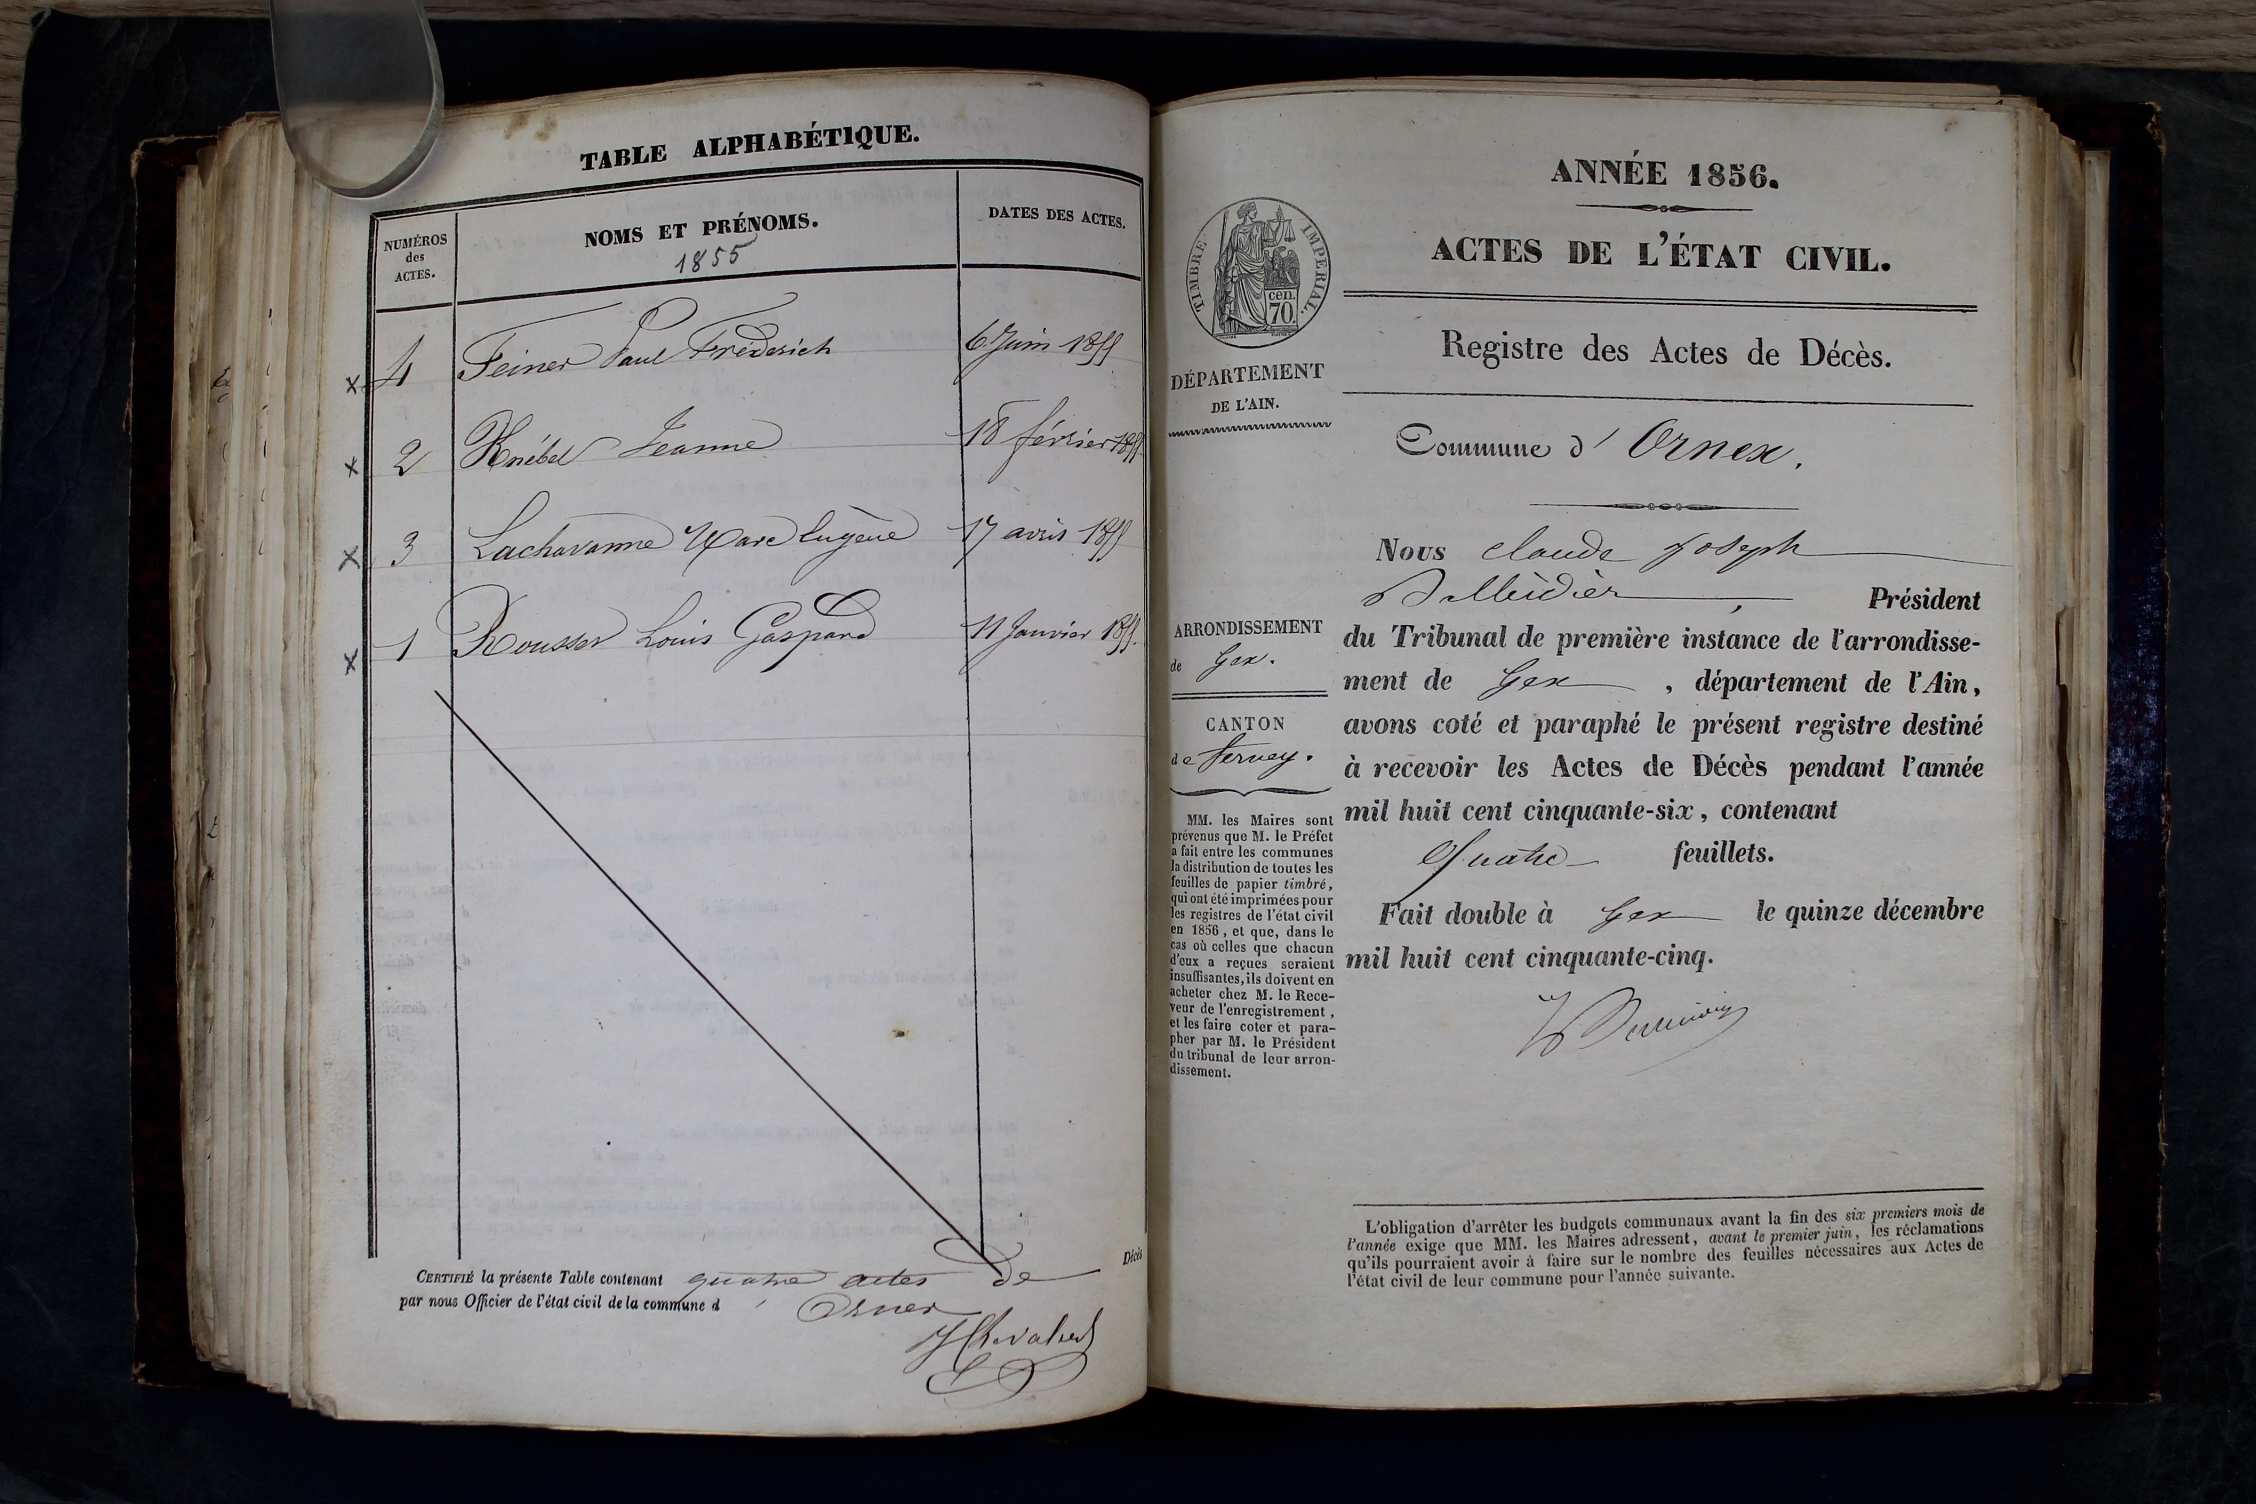 TABLE ALPHABÉTIQUE.
NUMÉROS
des
ACTES.
NOMS ET PRÉNOMS.
1855
DATES DES ACTES.
x 4 Feiner Paul Fréderich 6 Juin 1855
x 2 Knébel Jeanne 18 février 1855
x 3 Lachavanne Marc Eugène 17 avril 1855
x 1 Rousset Louis Gaspard 11 Janvier 1855.
Décès
CERTIFIÉ la présente Table contenant quatre actes de
par nous Officier de l'état civil de la commune d Ornex
ANNÉE 1856.
ACTES DE L'ÉTAT CIVIL.
TIMBRE IMPÉRIAL.
cen.
70
Registre des Actes de Décès.
DÉPARTEMENT
DE L'AIN.
Commune d'Ornex.
Nous Claude Joseph
Président
du Tribunal de première instance de l'arrondisse-
ment de Gex, département de l'Ain,
avons coté et paraphé le présent registre destiné
à recevoir les Actes de Décès pendant l'année
mil huit cent cinquante-six, contenant
Quatre feuillets.
Fait double à Gex le quinze décembre
mil huit cent cinquante-cinq.
ARRONDISSEMENT
de Gex.
CANTON
de Ferney.
MM. les Maires sont
prévenus que M. le Préfet
a fait entre les communes
la distribution de toutes les
feuilles de papier timbré,
qui ont été imprimées pour
les registres de l'état civil
en 1856, et que, dans le
cas où celles que chacun
d'eux a reçues seraient
insuffisantes, ils doivent en
acheter chez M. le Rece-
veur de l'enregistrement,
et les faire coter et para-
pher par M. le Président
du tribunal de leur arron-
dissement.
L'obligation d'arrêter les budgets communaux avant la fin des six premiers mois de
l'année exige que MM. les Maires adressent, avant le premier juin, les réclamations
qu'ils pourraient avoir à faire sur le nombre des feuilles nécessaires aux Actes de
l'état civil de leur commune pour l'année suivante.